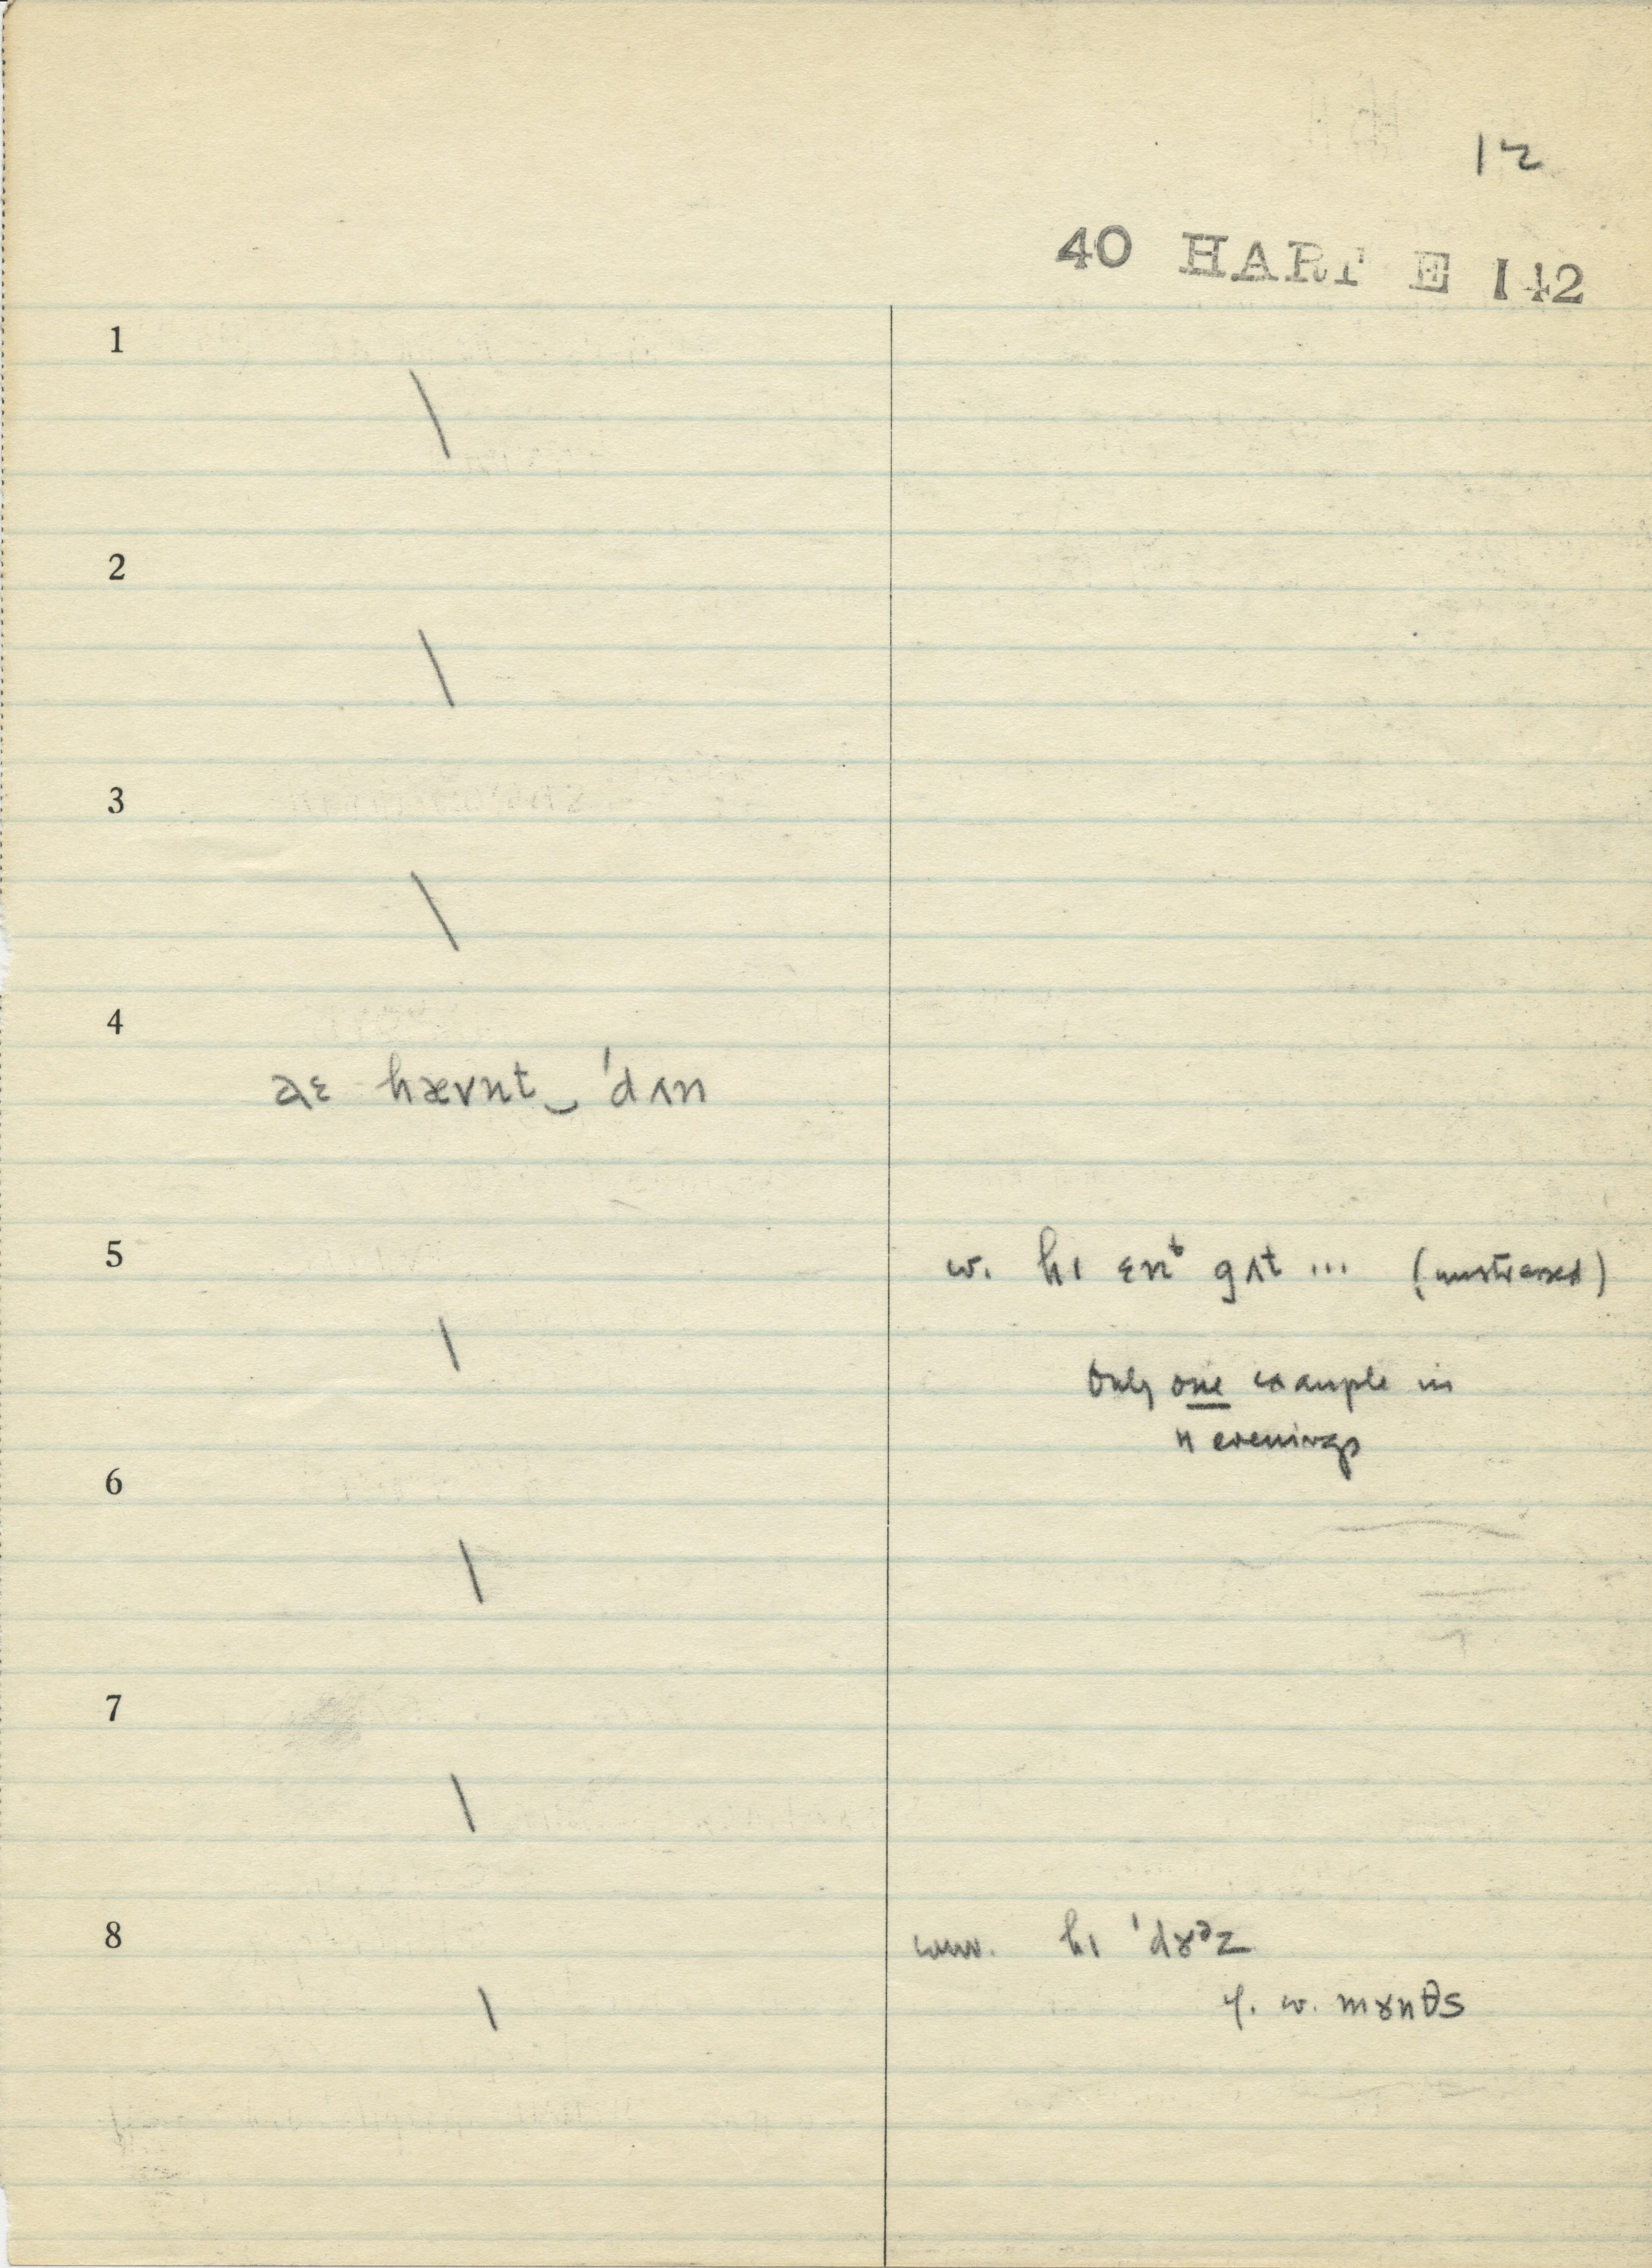 12
40 HART E 142
1
\
2
\
3
\
4
aɛ hævnt‿ 'dʌn
5
w. hɪ ɛnᵗ gʌt ... (unstressed)
\
Only one example in
4 evenings
6
\
7
\
8
conv. hɪ 'dɤᵊz
\
cf. w. mɤnθs